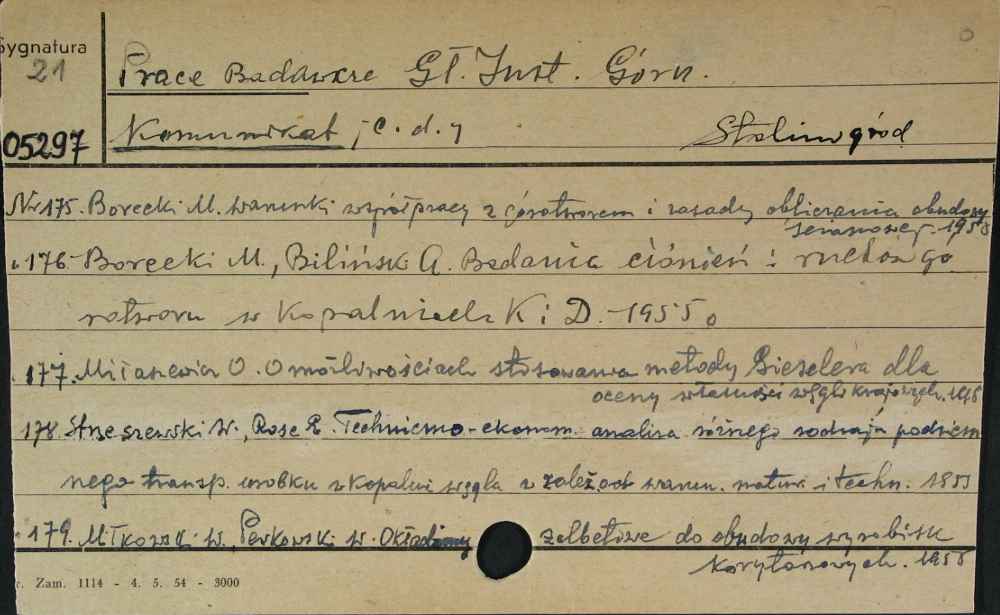 Sygnatura
21
Prace Badawcze Gł. Inst. Górn.
05297
Komunikat, c. d. 4
Stalinogród
Nr 175. Borecki M. Warunki współpracy z górotworem i zasady obliczania obudowy
ścianowej. 1955
" 176. Borecki M., Biliński A. Badania ciśnień i ruchów go
rotworu w Kopalniach K i D. - 1955.
" 177. Miłaszewicz O. O możliwościach stosowania metody Gieselera dla
oceny własności węgli krajowych. 1955
178. Strzeszewski W., Rose R. Techniczno-ekonom. analiza różnego rodzaju podziem
nego transp. urobku w kopalni węgla w zależ. od warun. natur. i techn. 1955
" 179. Mitkowski W., Perkowski W. Okładziny żelbetowe do obudowy wyrobisk
korytarzowych. 1955
r. Zam. 1114 - 4. 5. 54 - 3000